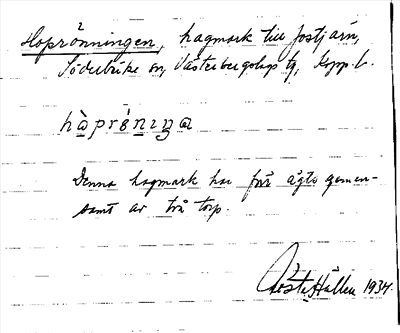 Hoprönningen, hagmark till Jostjärn,
Söderbärke sn, Västerbergslags tg, Kopp. l.
hòprǿniŋa
Denna hagmark har förr ägts gemen-
samt av två torp.
Gösta Hållen 1934.